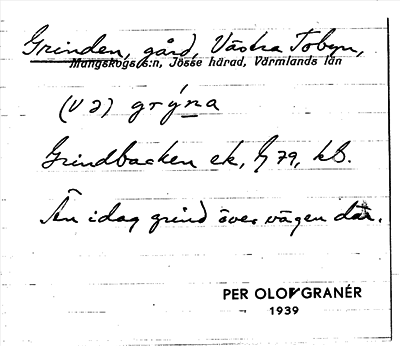 Grinden, gård, Västra Tobyn,
Mangskogs s:n, Jösse härad, Värmlands län
(v a) grýna
Grindbacken ek, 79, kb.
Än idag grind över vägen där.
PER OLOV GRANÉR
1939